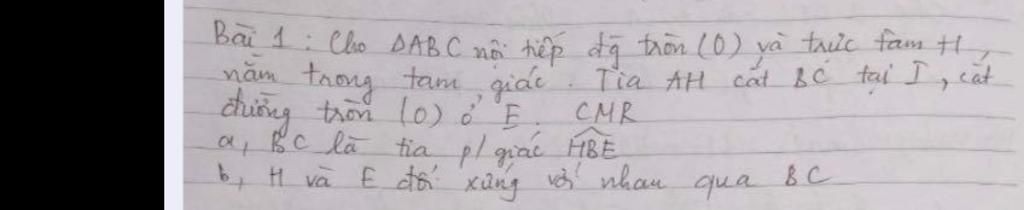 Bài 1 : Cho ΔABC nội tiếp đg tròn (O) và trực tâm H,
nằm trong tam giác. Tia AH cắt BC tại I, cắt
đường tròn (O) ở E. CMR
a, BC là tia p/giác \widehat{HBE}
b, H và E đối xứng với nhau qua BC